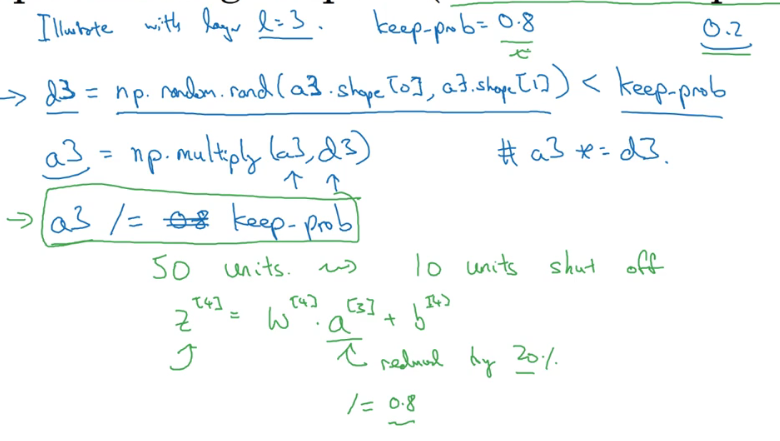 Illustrate with layer l=3. keep-prob = 0.8 0.2
→ d3 = np.random.rand(a3.shape[0], a3.shape[1]) < keep-prob
a3 = np.multiply(a3, d3) # a3 *= d3.
→ a3 /= 0.8 keep-prob
50 units. ⇝ 10 units shut off
z^[4] = W^[4] · a^[3] + b^[4]
reduced by 20%.
/= 0.8